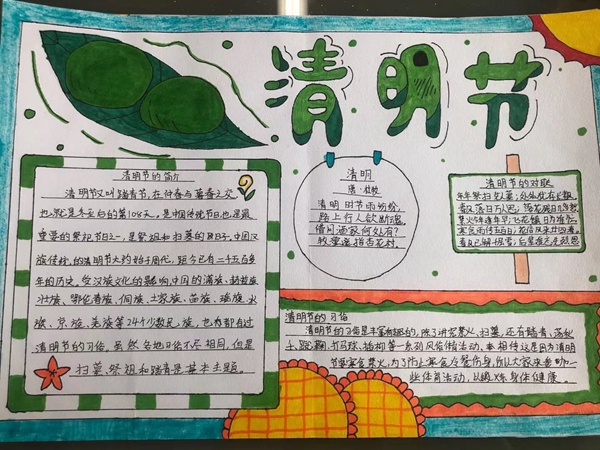 清明节
清明节的简介
清明节又叫踏青节,在仲春与暮春之交,
也就是冬至后的第108天,是中国传统节日,也是最
重要的祭祀节日之一,是祭祖和扫墓的日子,中国汉
族传统的清明节大约始于周代,距今已有二千五百多
年的历史。受汉族文化的影响,中国的满族、赫哲族
壮族、鄂伦春族、侗族、土家族、苗族、瑶族、水
族、京族、羌族等24个少数民族,也为都有过
清明节的习俗。虽然各地习俗不尽相同,但是
扫墓祭祖和踏青是基本主题。
清明
唐·杜牧
清明时节雨纷纷,
路上行人欲断魂。
借问酒家何处有?
牧童遥指杏花村。
清明节的对联
年年祭扫先人墓;处处犹存长
春
清明节的习俗
清明节的习俗是丰富有趣的,除了讲究禁火、扫墓,还有踏青、荡秋
千、蹴鞠、打马球、插柳等一系列风俗体育活动。相传这是因为清明
节要寒食禁火,为了防止寒食冷餐伤身,所以大家来参加一
些体育活动,以锻炼身体健康。